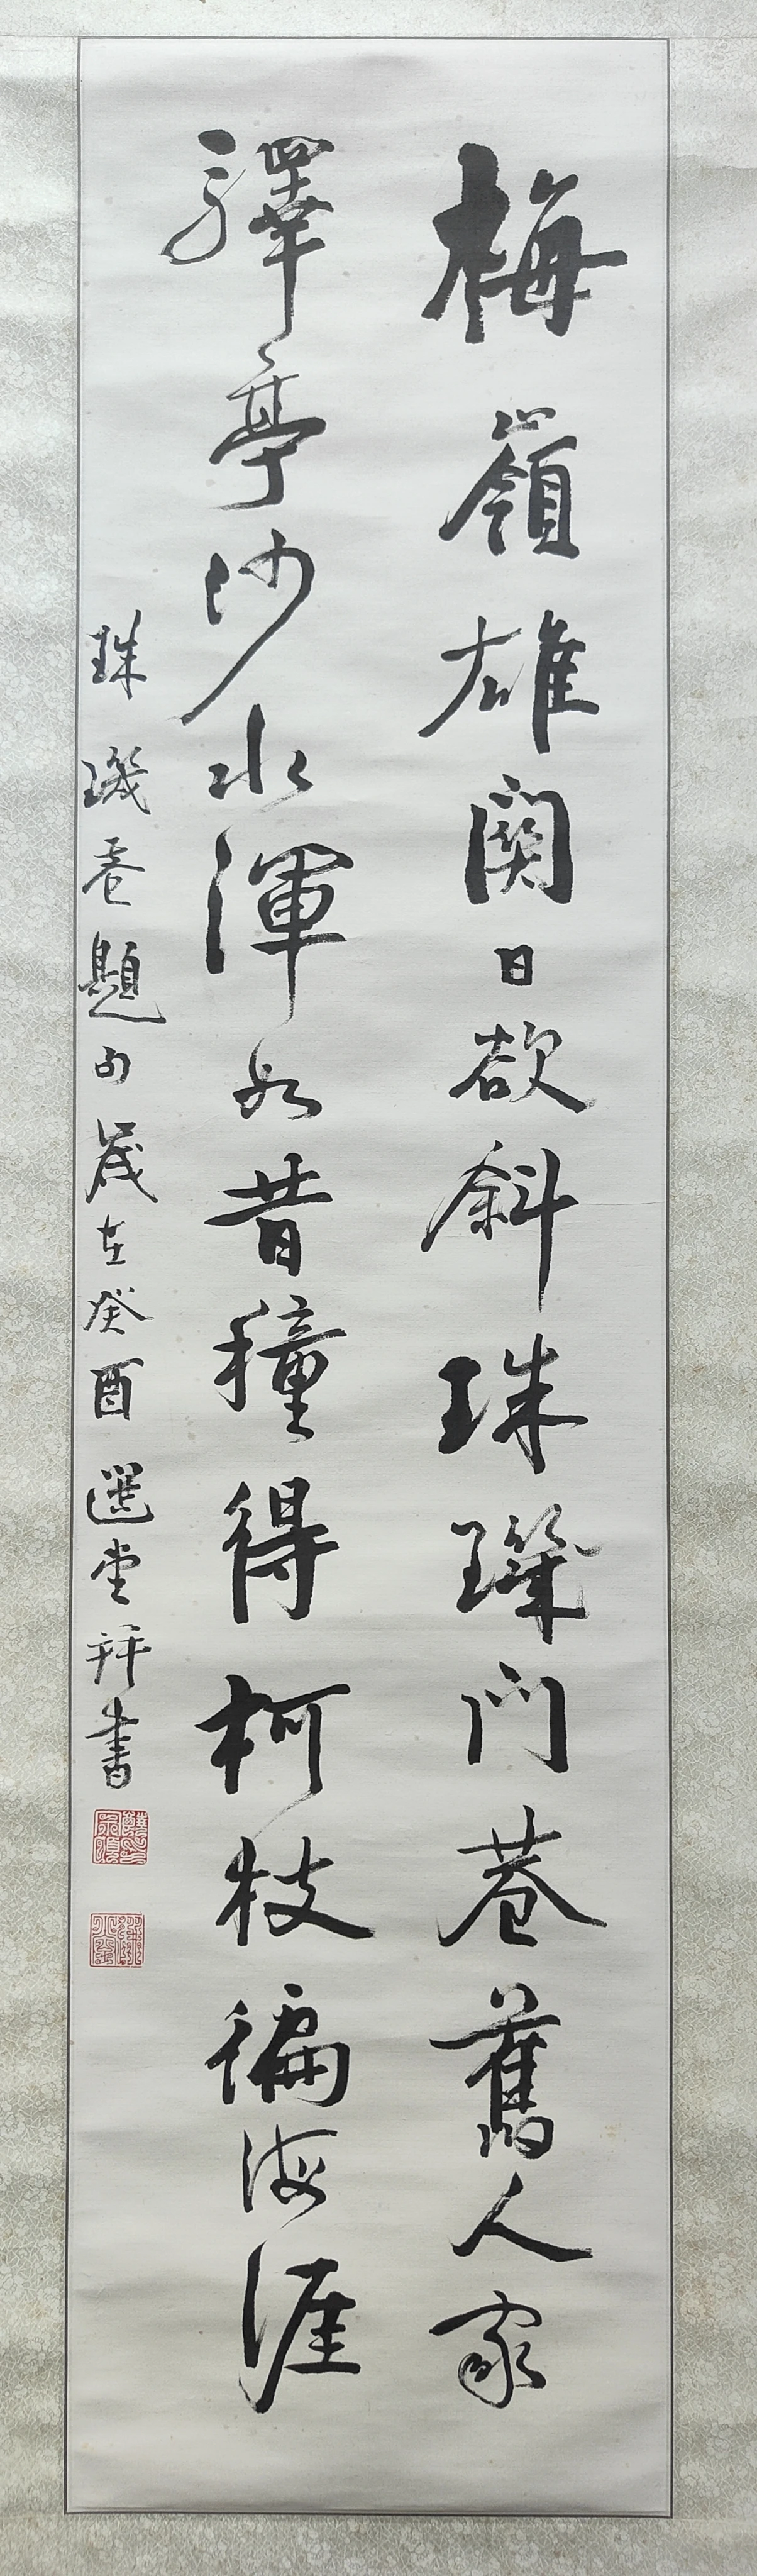 梅嶺雄関日欲斜珠璣門巷舊人家
驛亭沙水渾如昔種得柯枝徧海涯
珠璣巷題句歲在癸酉選堂拜書
饒宗頤印